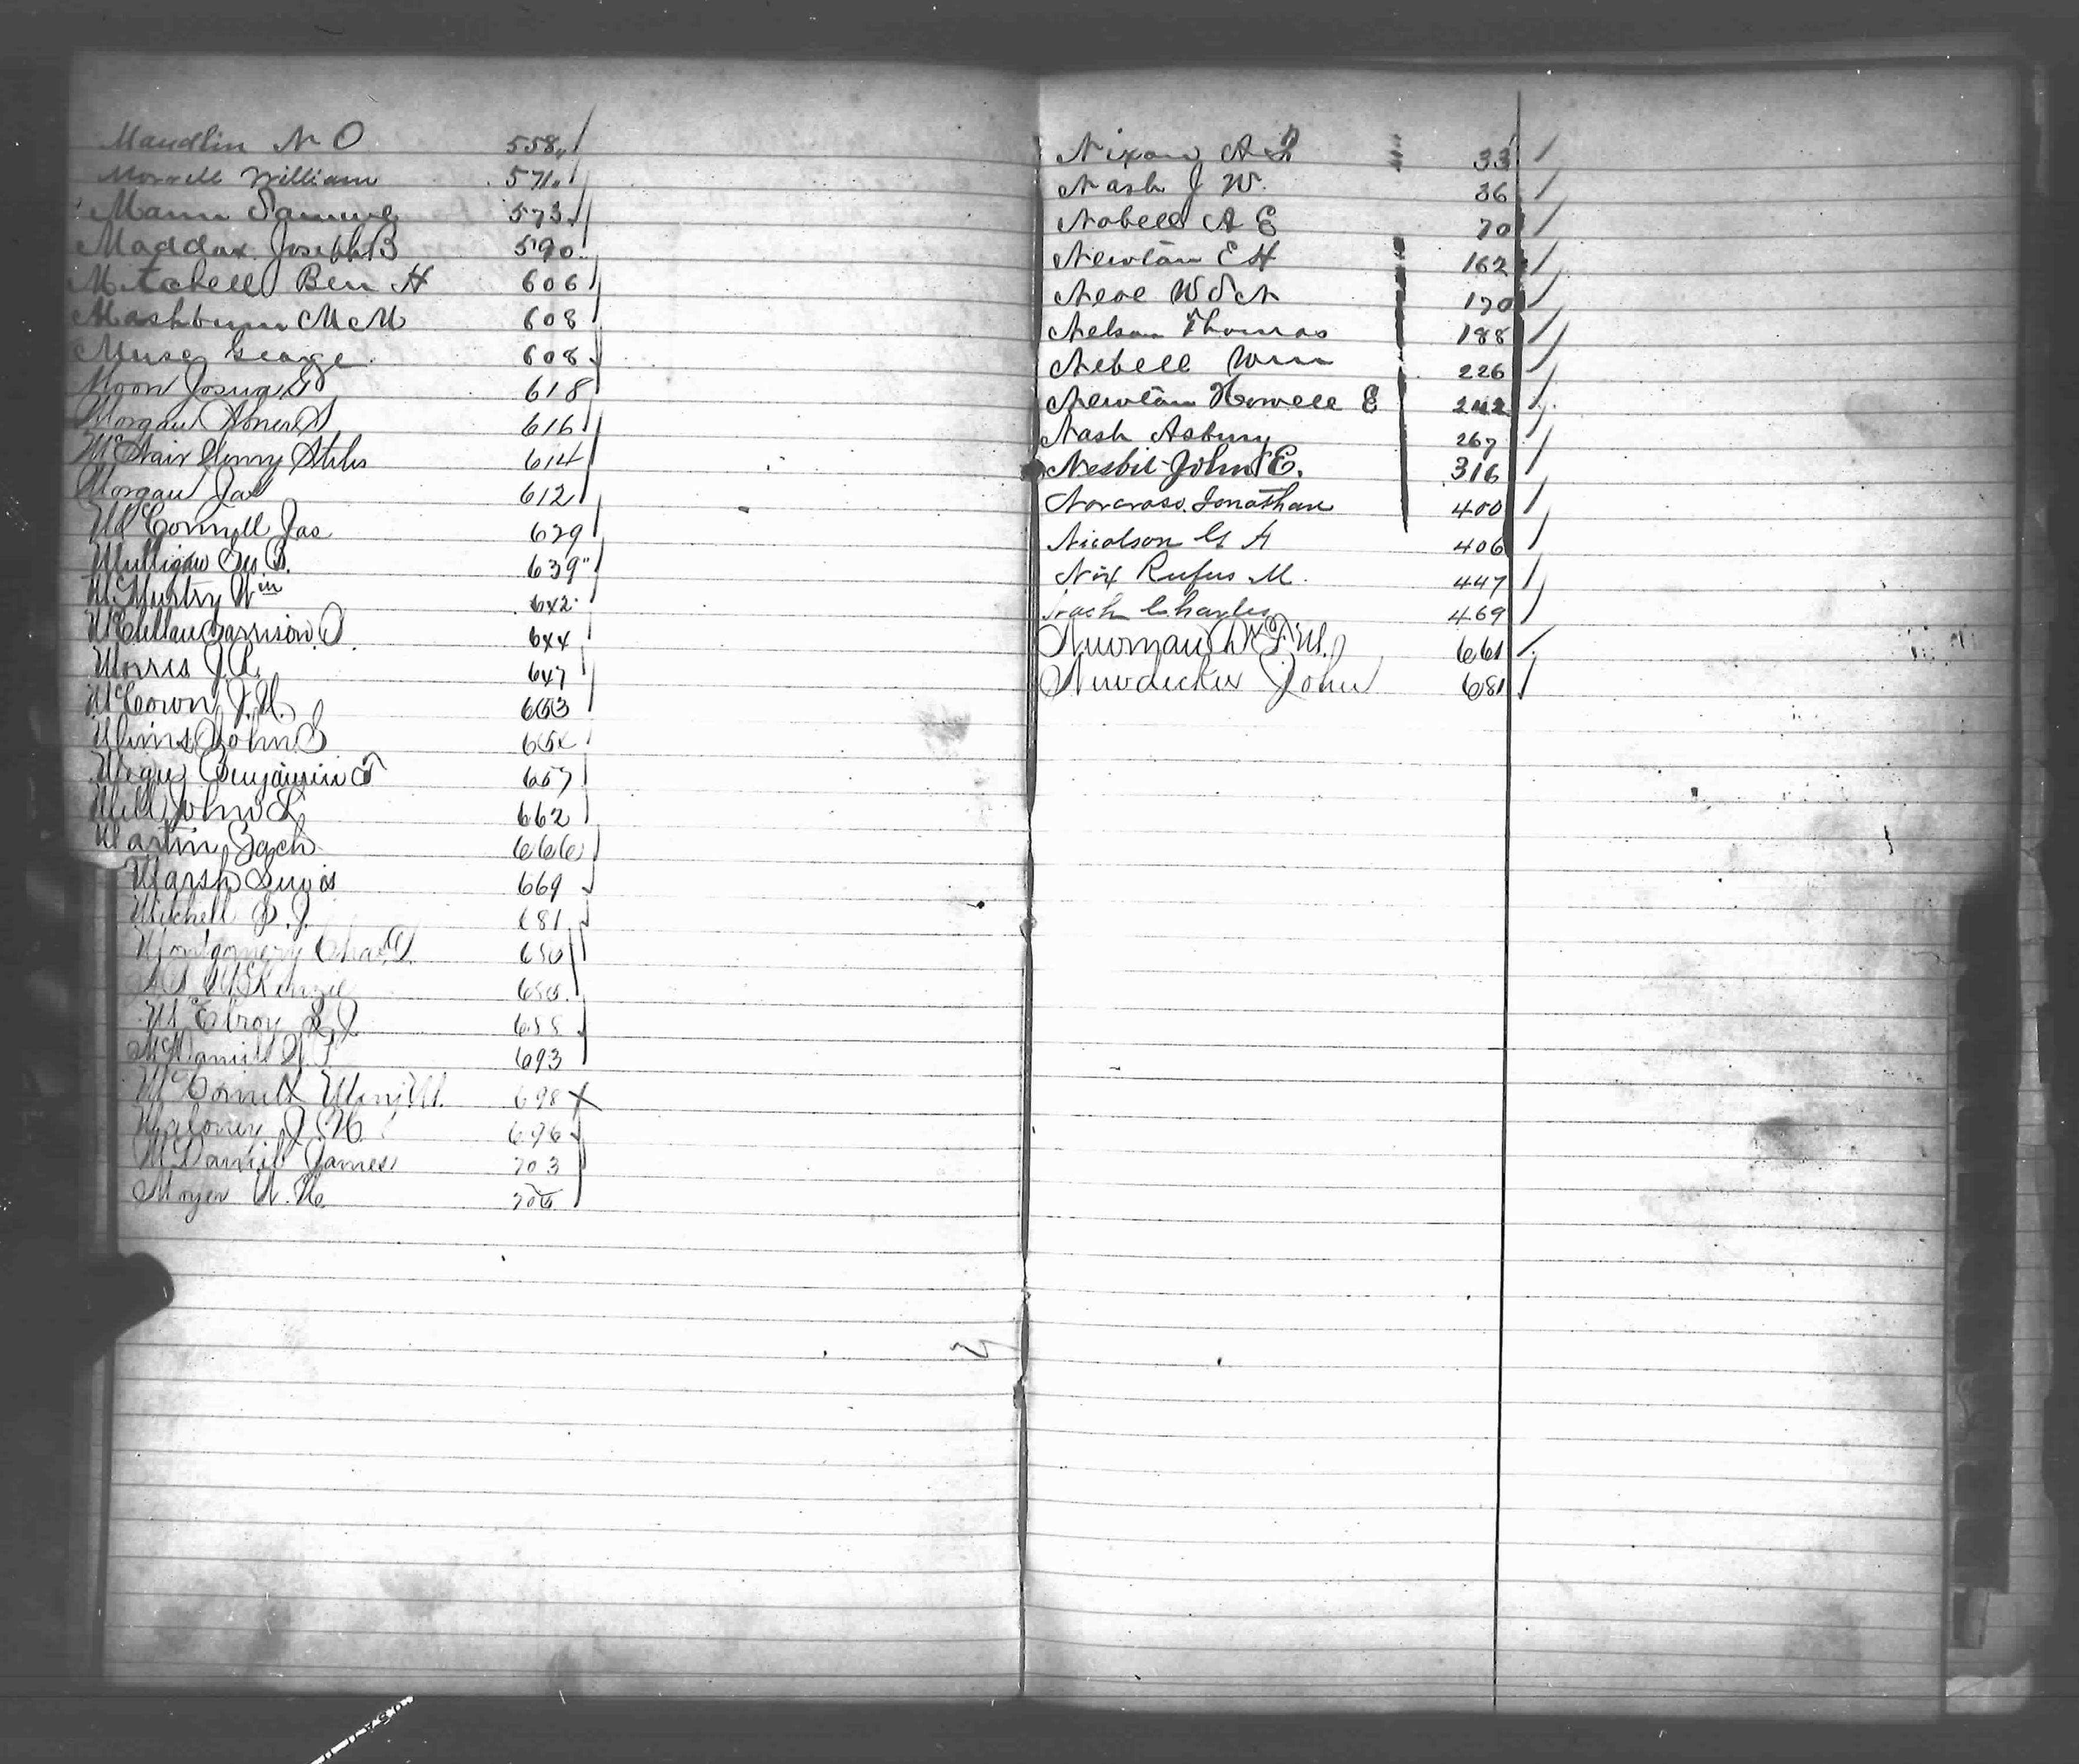 Maudlin N O 558
Morrell William 571
Mann Samuel 573
Maddox Joseph B 590
Mitchell Ben H 606
Mashburn M M 608
Muse George 608
Moon Josua 618
Morgan Abner 616
McNair Henry Stiles 614
Morgan Jas 612
McConnell Jas 629
Mulligan Geo B. 639
McMurtry Wm 642
McClellan Garrison 644
Morris J. R. 647
McCown J. M. 653
Mims John S 654
Benjamin 657
John L 662
Martin Zach 666
Marsh Lewis 669
Mitchell D. J. 681
Montgomery Chas 650
McKenzie
McElroy
McDaniel 693
McConnell 698
Maloney J. H. 696
McDaniel James 703
Moyer W. H.
Nixon A 33
Nash J W. 36
Nobell A E 70
Newton E H 162
Neal W 170
Nelson Thomas 188
Nebell Wm 226
Newton Howell E 242
Nash Asbury 267
Nesbit John E. 316
Norcross Jonathan 400
Nicolson G A 406
Nix Rufus M. 447
Nach Charles 469
Newman Dr F. M. 661
Newdecker John 681